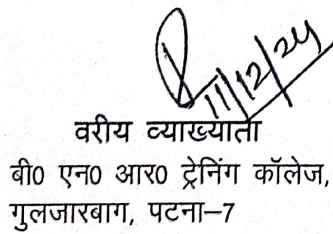 11/12/24
वरीय व्याख्याता
बी0 एन0 आर0 ट्रेनिंग कॉलेज,
गुलजारबाग, पटना–7